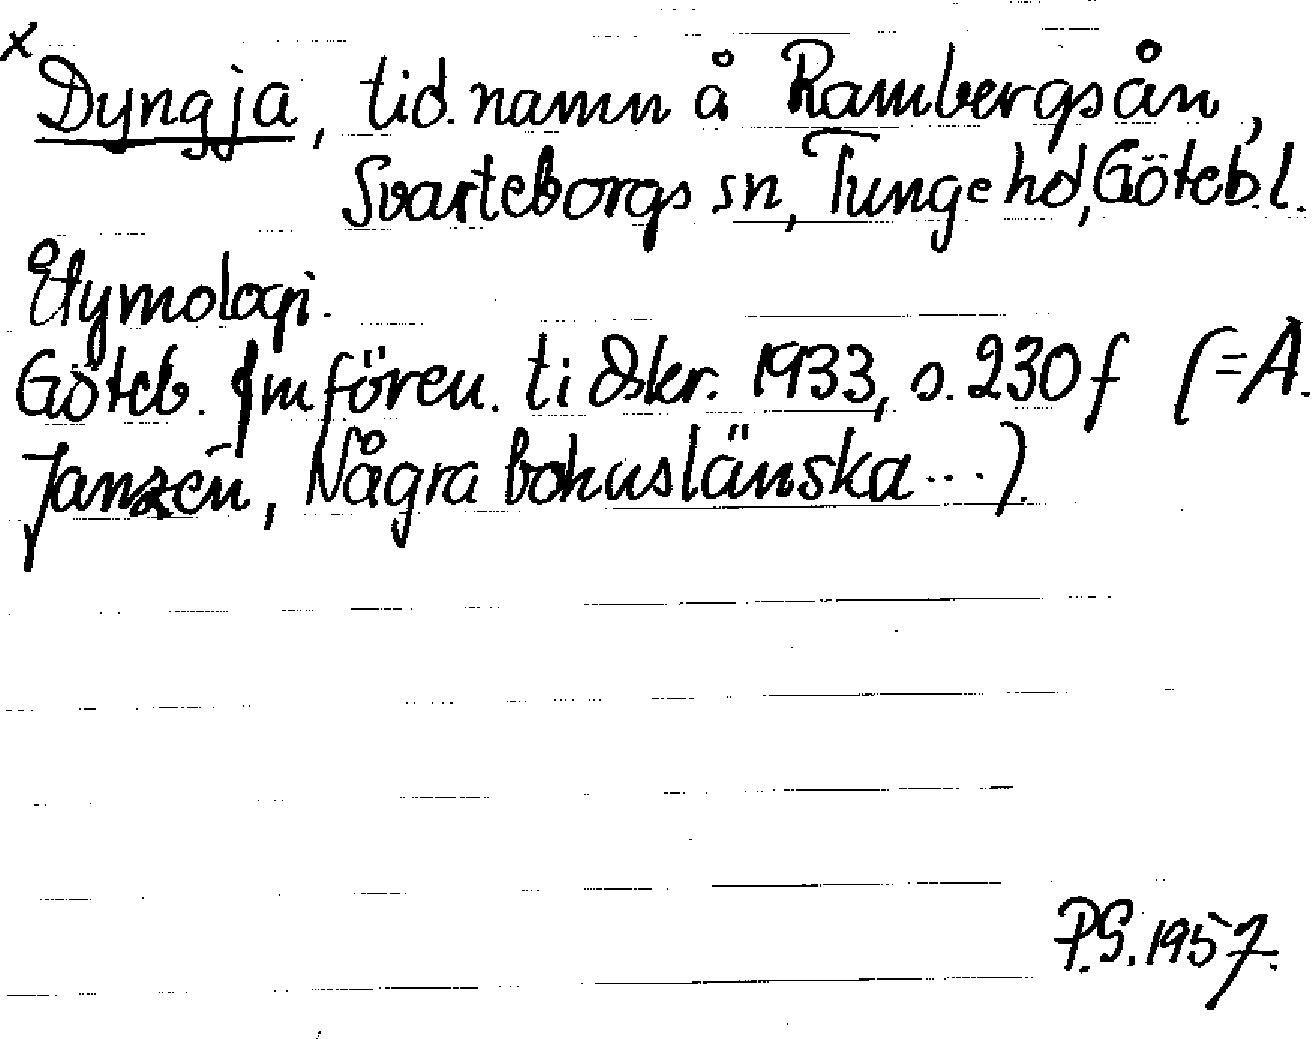 x Dyngja, tid. namn å Rambergsån,
Svarteborgs sn, Tunge hd, Göteb. l.
Etymologi.
Göteb. Jmfören. tidskr. 1933, s. 230 f (= A.
Janzén, Några bohuslänska ...).
P.G. 1957.